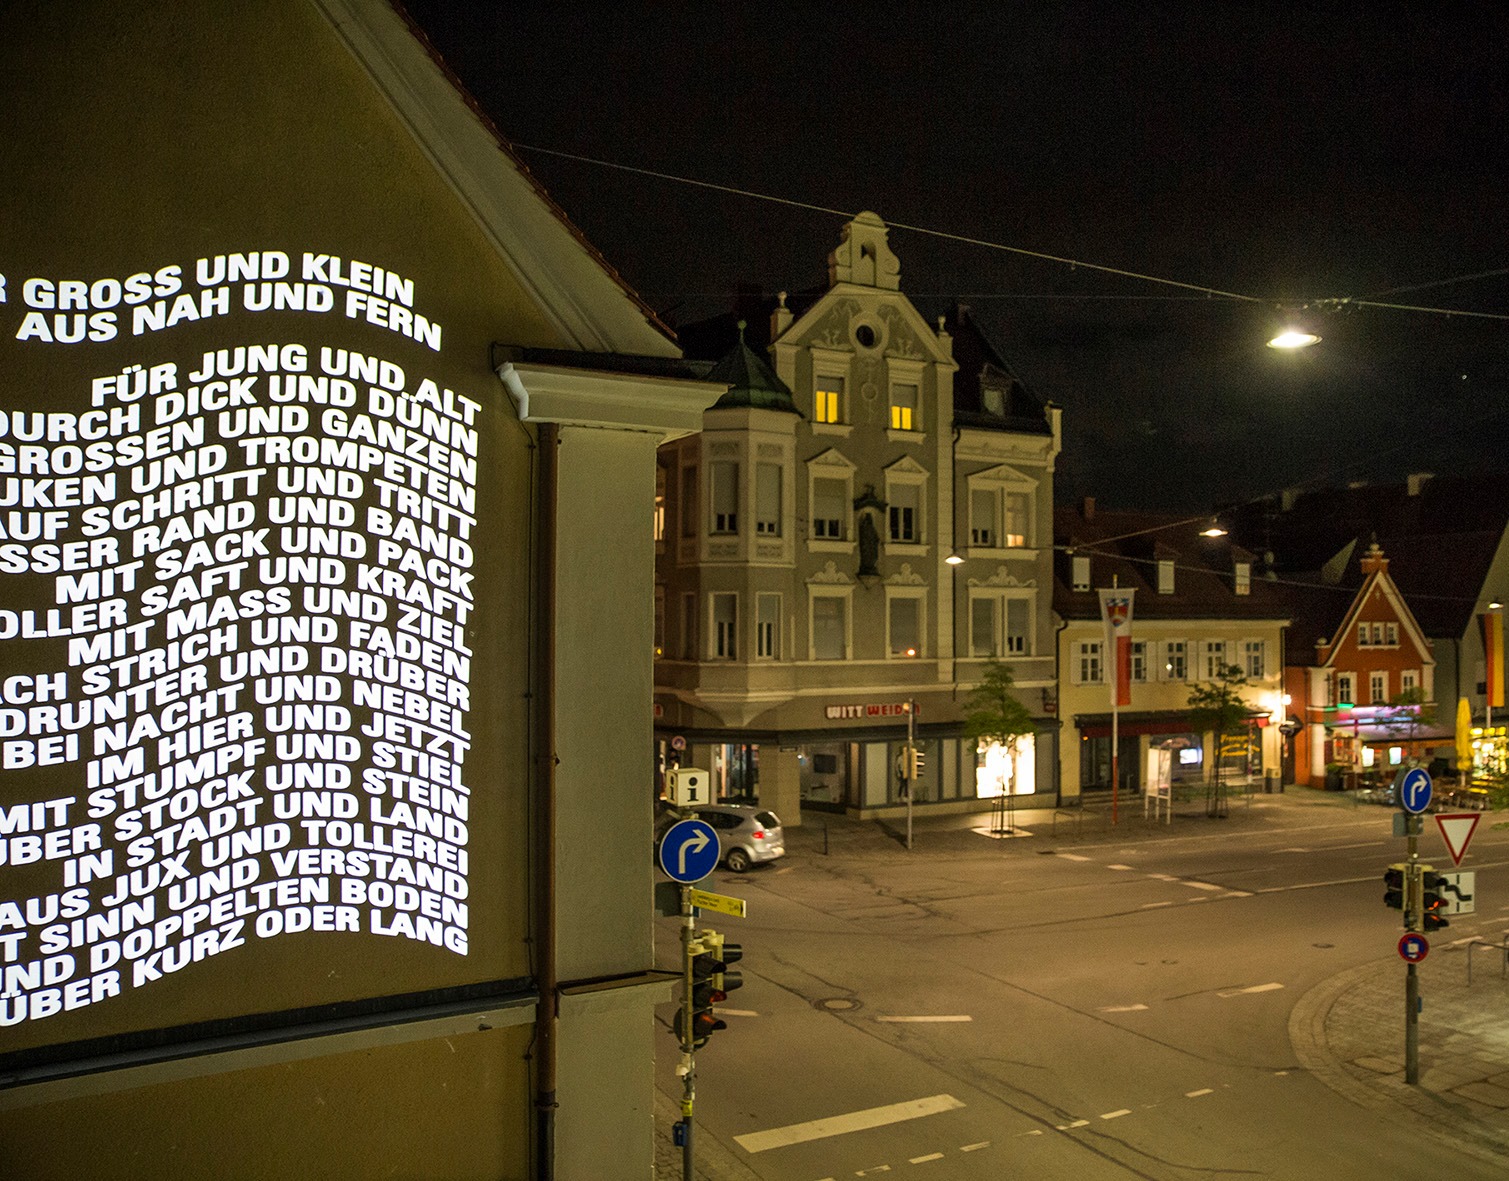 GROSS UND KLEIN
AUS NAH UND FERN
FÜR JUNG UND ALT
DURCH DICK UND DÜNN
GROSSEN UND GANZEN
UKEN UND TROMPETEN
AUF SCHRITT UND TRITT
SSER RAND UND BAND
MIT SACK UND PACK
OLLER SAFT UND KRAFT
MIT MASS UND ZIEL
ACH STRICH UND FADEN
DRUNTER UND DRÜBER
BEI NACHT UND NEBEL
IM HIER UND JETZT
MIT STUMPF UND STIEL
ÜBER STOCK UND STEIN
IN STADT UND LAND
AUS JUX UND TOLLEREI
T SINN UND VERSTAND
UND DOPPELTEN BODEN
ÜBER KURZ ODER LANG
WITT WEIDEN
i